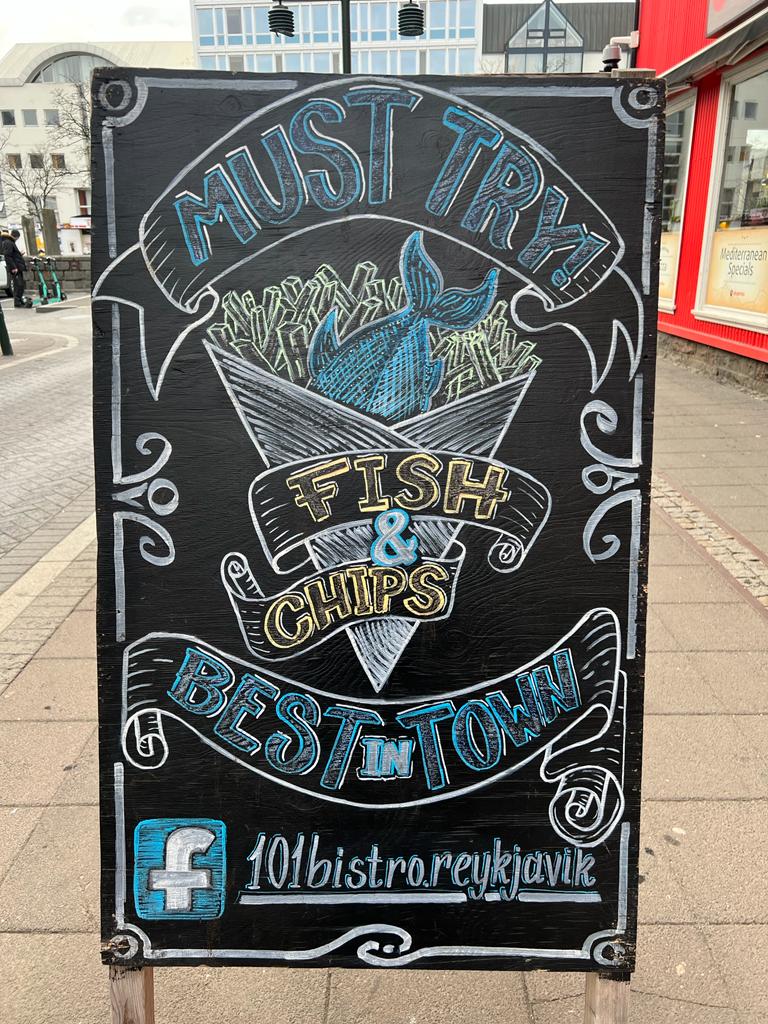 MUST TRY!
FISH
&
CHIPS
BEST IN TOWN
f 101bistro.reykjavik
Mediterranean
Specials